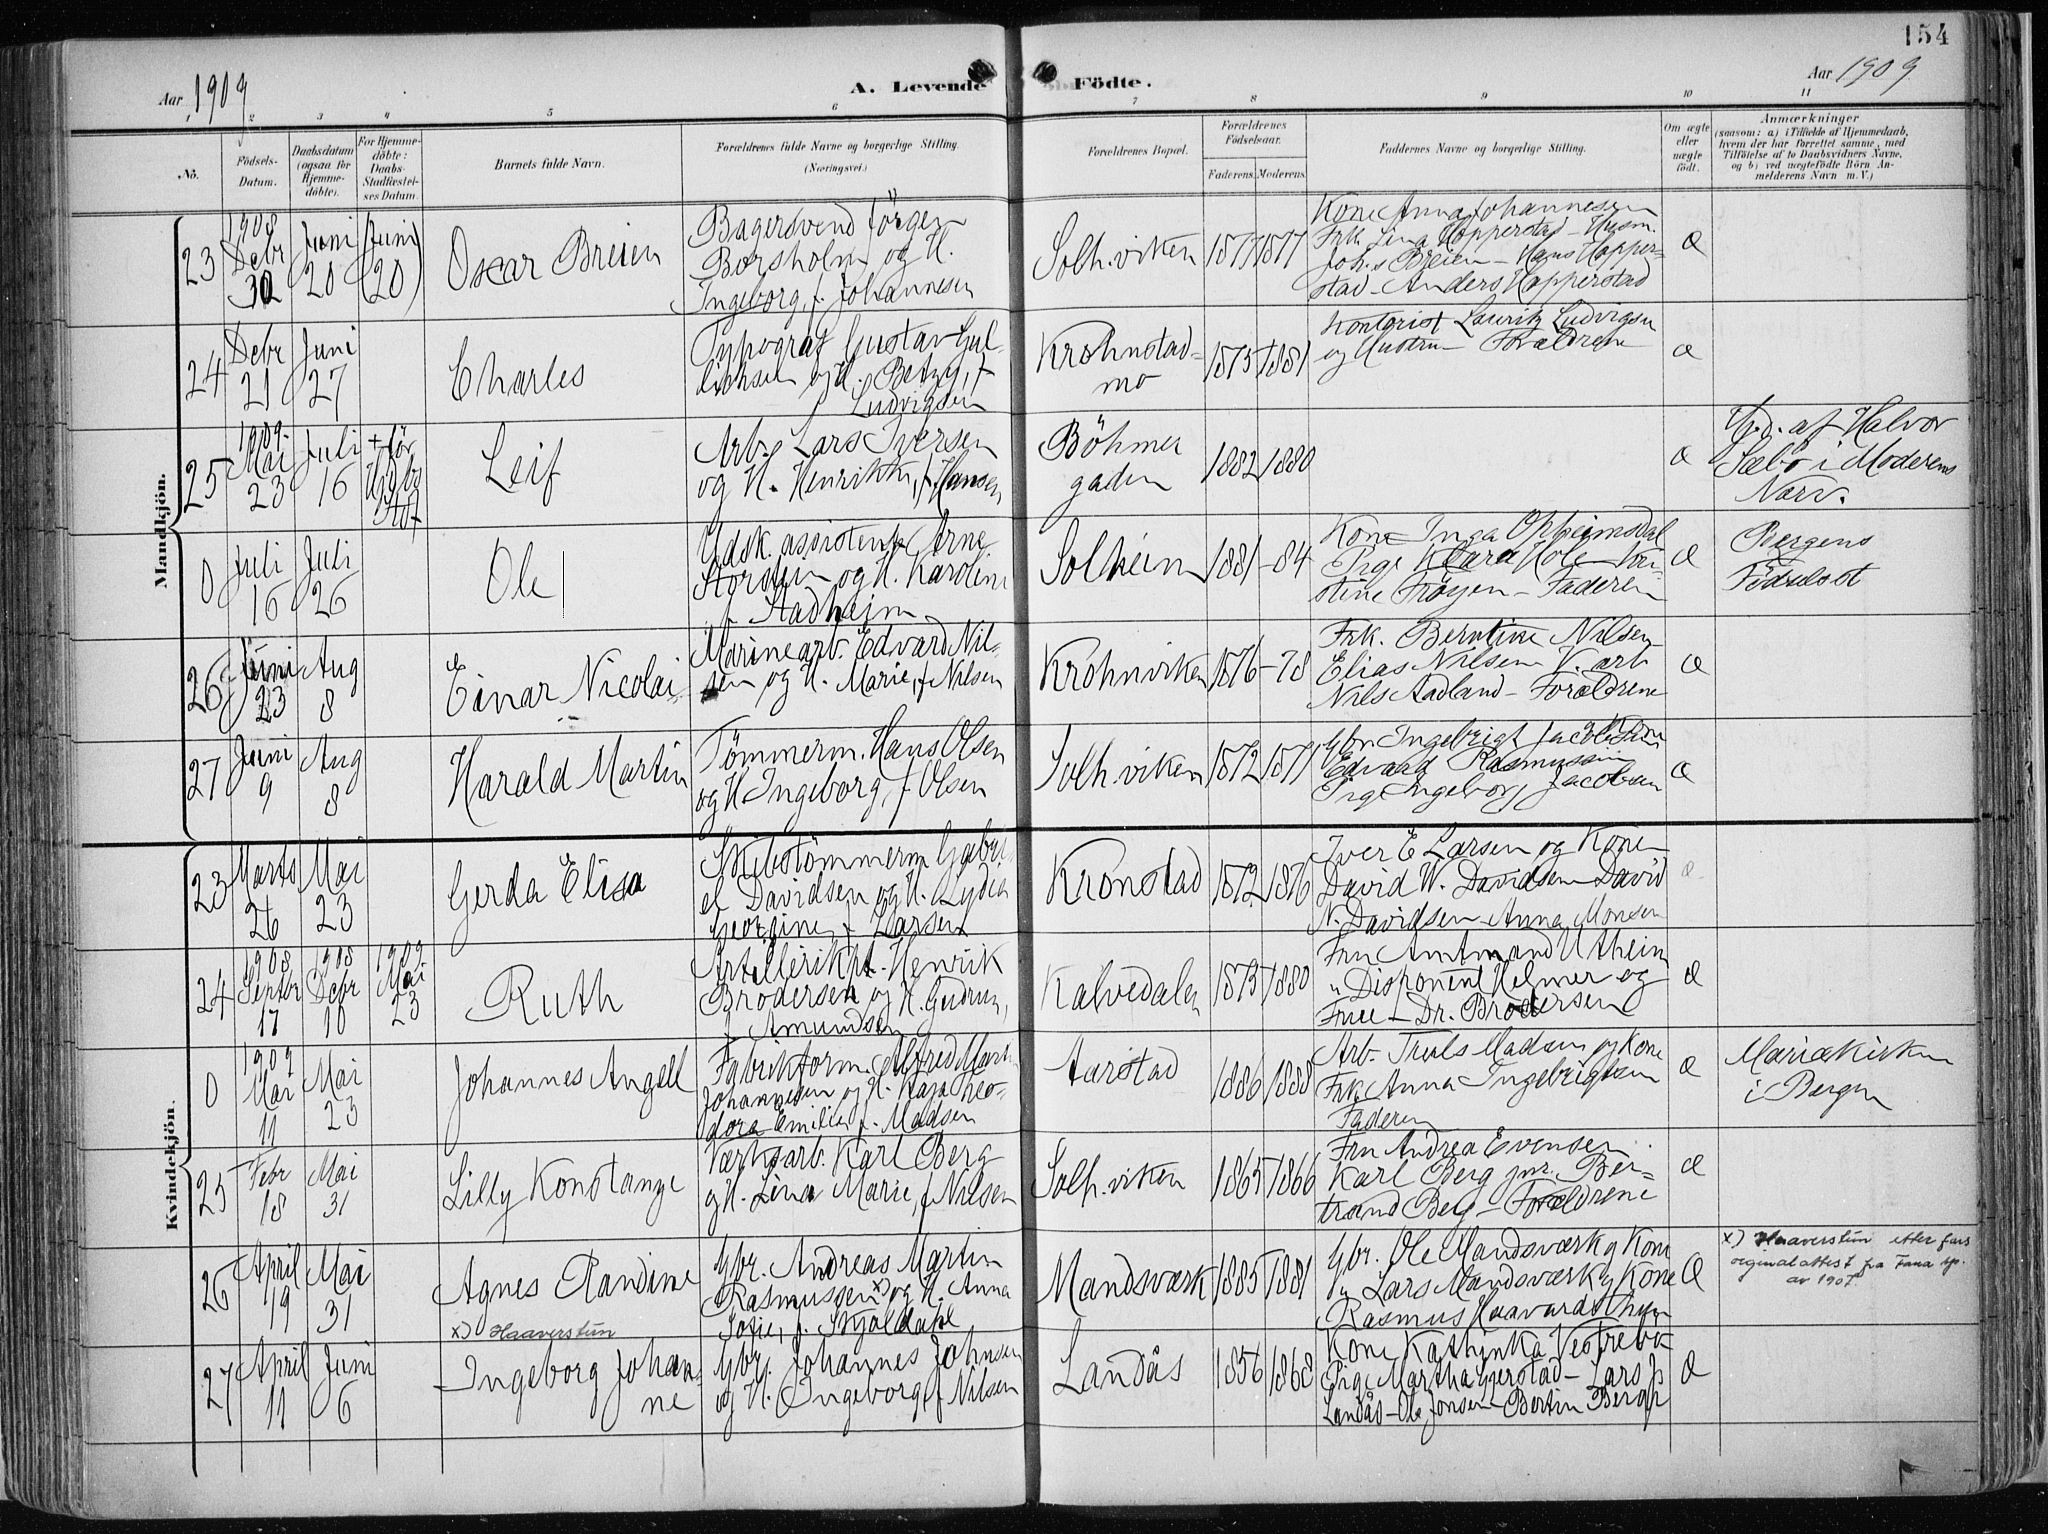 154
Aar 1909
A. Levende Födte.
Aar 1909
1 2 3 4 5 6 7 8 9 10 11
No.
Födsels-Datum.
Daabsdatum (ogsaa for Hjemmedöbte).
For Hjemmedöbte: Daabs-Stadfæstelses Datum.
Barnets fulde Navn.
Forældrenes fulde Navne og borgerlige Stilling. (Næringsvei.)
Forældrenes Bopæl.
Forældrenes Födselsaar.
Faderens. Moderens.
Faddernes Navne og borgerlige Stilling.
Om ægte eller uægte födt.
Anmærkninger
(saasom: a) i Tilfælde af Hjemmedaab,
hvem der har forrettet samme, med
Tilföielse af to Daabsvidners Navne,
og b) ved uægtefödte Börn An-
melderens Navn m. V.)
Mandkjön.
23
1908 Debr 30
Juni 20
(Juni 20)
Oscar Breien
Bagersvend Jörgen
Borsholm og H.
Ingeborg, f. Johannesen
Solh.viken
1877 1877
Kone Anna Johannesen
Frk. Lina Hopperstad - Husm.
Joh.s Breien - Hans Hopper-
stad - Anders Hopperstad
Æ
24
Debr 21
Juni 27
Charles
Typograf Gustav Gul-
liksen og H. Betzy, f.
Ludvigsen
Krohnstad-
mo
1875 1881
Kontorist Lauritz Ludvigsen
og Hustru - Forældrene
Æ
25
1909 Mai 23
Juli 16
+ før
Leif
Arb. Lars Iversen
og H. Henrikke, f. Hansen
Böhmer
gaden
1882 1880
Æ
Hj.d. af Halvor
Sæbö i Moderens
Nærv.
0
Juli 16
Juli 26
Ole
Udsk. assistent Arne
Storstein og H. Karoline
f. Stadheim
Solheim
1881 - 84
Kone Inga Opheimsdal
Pige Klara Hole
stine Fröyen - Faderen
Æ
Bergens
Födselsst
26
Juni 23
Aug 8
Einar Nicolai
Marinearb. Edvard Nil-
sen og H. Marie, f. Nilsen
Krohnviken
1876 - 78
Frk. Berntine Nilsen
Elias Nilsen V. arb
Nils Aadland - Forældrene
Æ
27
Juni 9
Aug 8
Harald Martin
Tömmerm. Hans Olsen
og H. Ingeborg, f. Olsen
Solh.viken
1872 1871
Gbr. Ingebrigt Jacobsen
Edvard Rasmussen
Pige Ingeborg Jacobsen
Æ
Kvindekjön.
23
Marts 26
Mai 23
Gerda Elisa
Skibstömmerm.
Davidsen og H. Lydia
Georgine, f. Larsen
Kronstad
1872 1876
Iver E Larsen og Kone
David W. Davidsen David
N. Davidsen - Anna Monsen
Æ
24
1908 Septbr 17
1908 Debr 10
1909 Mai 23
Ruth
Artillerikpt. Henrik
Brodersen og H. Gudrun,
f. Amundsen
Kalvedalen
1873 1880
Fru Amtmand Utheim
" Disponent Helmer og
Frue - Dr. Brodersen
Æ
0
1909 Mai 11
Mai 23
Johannes Angell
Fabrikform. Alfred Martin
Johannesen og H. Kaja Theo-
dora Emilie, f. Madsen
Aarstad
1886 1888
Arb. Truls Madsen og Kone
Frk. Anna Ingebrigtsen
Faderen
Æ
Mariækirken
i Bergen
25
Febr 18
Mai 31
Lilly Konstanze
Værksarb. Karl Berg
og H. Lina Marie, f. Nilsen
Solh.viken
1865 1866
Fru Andrea Evensen
Karl Berg jnr. Ber-
trand Berg - Forældrene
Æ
26
April 19
Mai 31
Agnes Randine
x) Haaverstun
Gbr. Andreas Martin
Rasmussen x) og H. Anna
Sofie, f. Skjoldahl
Mandsværk
1885 1881
Gbr. Ole Mandsværk og Kone
" Lars Mandsværk og Kone
Rasmus Haavardsthun
Æ
x) Haaverstun etter fars
orginalattest fra Fana sp.
av 1907.
27
April 11
Juni 6
Ingeborg Johan-
ne
Gbr. Johannes Johnsen
og H. Ingeborg, f. Nilsen
Landås
1856 1868
Kone Kathinka Vestrebö
Pige Martha Gjerstad - Lars J.
Landås - Ole Jonsen - Bertin Berge
Æ